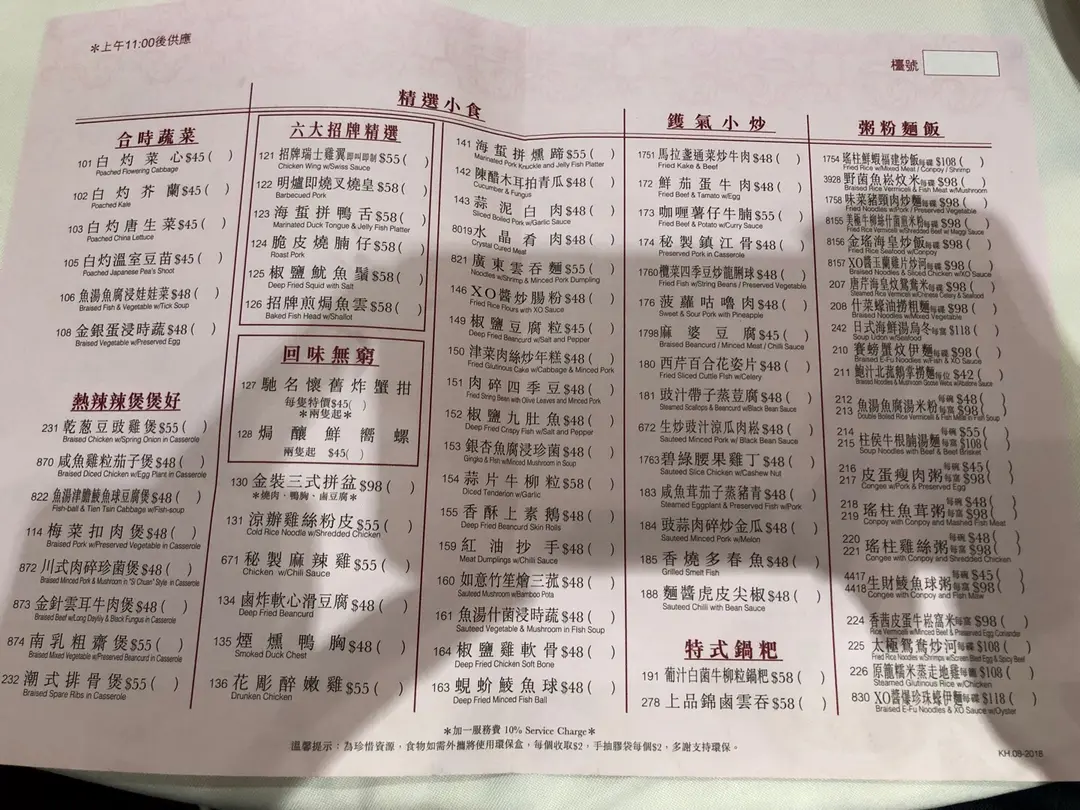 ＊上午11:00後供應
檯號
合時蔬菜
101 白灼菜心 $45 ( )
Poached Flowering Cabbage
102 白灼芥蘭 $45 ( )
Poached Kale
103 白灼唐生菜 $45 ( )
Poached China Lettuce
105 白灼溫室豆苗 $45 ( )
Poached Japanese Pea's Shoot
106 魚湯魚腐浸娃娃菜 $48 ( )
Braised Fish & Vegetable w/Tick Soup
108 金銀蛋浸時蔬 $48 ( )
Braised Vegetable w/Preserved Egg
熱辣辣煲煲好
231 乾葱豆豉雞煲 $55 ( )
Braised Chicken w/Spring Onion in Casserole
870 咸魚雞粒茄子煲 $48 ( )
Braised Diced Chicken w/Egg Plant in Casserole
822 魚湯津膽鯪魚球豆腐煲 $48 ( )
Fish-ball & Tien Tsin Cabbage w/Fish-soup
114 梅菜扣肉煲 $48 ( )
Braised Pork w/Preserved Vegetable in Casserole
872 川式肉碎珍菌煲 $48 ( )
Braised Minced Pork & Mushroom in "Si Chuan" Style in Casserole
873 金針雲耳牛肉煲 $48 ( )
Braised Beef w/Long Daylily & Black Fungus in Casserole
874 南乳粗齋煲 $55 ( )
Braised Mixed Vegetable w/Preserved Beancurd in Casserole
232 潮式排骨煲 $55 ( )
Braised Spare Ribs in Casserole
精選小食
六大招牌精選
121 招牌瑞士雞翼 即叫即制 $55 ( )
Chicken Wing w/Swiss Sauce
122 明爐即燒叉燒皇 $58 ( )
Barbecued Pork
123 海蜇拼鴨舌 $58 ( )
Marinated Duck Tongue & Jelly Fish Platter
124 脆皮燒腩仔 $58 ( )
Roast Pork
125 椒鹽魷魚鬚 $58 ( )
Deep Fried Squid with Salt
126 招牌煎焗魚雲 $58 ( )
Baked Fish Head w/Shallot
回味無窮
127 馳名懷舊炸蟹拑
每隻特價$45( )
＊兩隻起＊
128 焗釀鮮嚮螺
兩隻起 $45( )
130 金裝三式拼盆 $98 ( )
＊燒肉、鴨胸、鹵豆腐＊
131 涼辦雞絲粉皮 $55 ( )
Cold Rice Noodle w/Shredded Chicken
671 秘製麻辣雞 $55 ( )
Chicken w/Chili Sauce
134 鹵炸軟心滑豆腐 $48 ( )
Deep Fried Beancurd
135 煙燻鴨胸 $48 ( )
Smoked Duck Chest
136 花彫醉嫩雞 $55 ( )
Drunken Chicken
141 海蜇拼燻蹄 $55 ( )
Marinated Pork Knuckle and Jelly Fish Platter
142 陳醋木耳拍青瓜 $48 ( )
Cucumber & Fungus
143 蒜泥白肉 $48 ( )
Sliced Boiled Pork w/Garlic Sauce
8019 水晶肴肉 $48 ( )
Crystal Cured Meat
821 廣東雲吞麵 $55 ( )
Noodles w/Shrimp & Minced Pork Dumpling
146 XO醬炒腸粉 $48 ( )
Fried Rice Flours with XO Sauce
149 椒鹽豆腐粒 $45 ( )
Deep Fried Beancurd w/Salt and Pepper
150 津菜肉絲炒年糕 $48 ( )
Fried Glutinous Cake w/Cabbage & Minced Pork
151 肉碎四季豆 $48 ( )
Fried String Bean with Olive Leaves and Minced Pork
152 椒鹽九肚魚 $48 ( )
Deep Fried Crispy Fish w/Salt and Pepper
153 銀杏魚腐浸珍菌 $48 ( )
Gingko & Fish w/Minced Mushroom in Soup
154 蒜片牛柳粒 $58 ( )
Diced Tenderion w/Garlic
155 香酥上素鵝 $48 ( )
Deep Fried Beancurd Skin Rolls
159 紅油抄手 $48 ( )
Meat Dumplings w/Chilli Sauce
160 如意竹笙燴三菰 $48 ( )
Sauteed Mushroom w/Bamboo Pota
161 魚湯什菌浸時蔬 $48 ( )
Sauteed Vegetable & Mushroom in Fish Soup
164 椒鹽雞軟骨 $48 ( )
Deep Fried Chicken Soft Bone
163 蜆蚧鯪魚球 $48 ( )
Deep Fried Minced Fish Ball
鑊氣小炒
1751 馬拉盞通菜炒牛肉 $48 ( )
Fried Kake & Beef
172 鮮茄蛋牛肉 $48 ( )
Fried Beef & Tamato w/Egg
173 咖喱薯仔牛腩 $55 ( )
Fried Beef & Potato w/Curry Sauce
174 秘製鎮江骨 $48 ( )
Preserved Pork in Casserole
1760 欖菜四季豆炒龍脷球 $48 ( )
Fried Fish w/String Beans / Preserved Vegetable
176 菠蘿咕嚕肉 $48 ( )
Sweet & Sour Pork with Pineapple
1798 麻婆豆腐 $45 ( )
Braised Beancurd / Minced Meat / Chilli Sauce
180 西芹百合花姿片 $48 ( )
Fried Sliced Cuttle Fish w/Celery
181 豉汁帶子蒸荳腐 $48 ( )
Steamed Scallops & Beancurd w/Black Bean Sauce
672 生炒豉汁涼瓜肉崧 $48 ( )
Sauteed Minced Pork w/ Black Bean Sauce
1763 碧綠腰果雞丁 $48 ( )
Sauteed Slice Chicken w/Cashew Nut
183 咸魚茸茄子蒸豬青 $48 ( )
Steamed Eggplant & Preserved Fish w/Pork
184 豉蒜肉碎炒金瓜 $48 ( )
Sauteed Minced Pork w/Melon
185 香燒多春魚 $48 ( )
Grilled Smelt Fish
188 麵醬虎皮尖椒 $48 ( )
Sauteed Chilli with Bean Sauce
特式鍋粑
191 葡汁白菌牛柳粒鍋粑 $58 ( )
278 上品錦鹵雲吞 $58 ( )
粥粉麵飯
1754 瑤柱鮮蝦福建炒飯 每碟 $108 ( )
Fried Rice w/Mixed Meat / Conpoy / Shrimp
3928 野菌魚崧炆米 每碟 $98 ( )
Braised Rice Vermicelli & Fish Meat w/Mushroom
1758 味菜豬頸肉炒麵 每碟 $98 ( )
Fried Noodles w/Pork / Preserved Vegetable
8155 美極牛柳絲什菌煎米粉 每碟 $98 ( )
Fried Rice Vermicelli w/Shredded Beef w/ Maggi Sauce
8156 金瑤海皇炒飯 每碟 $98 ( )
Fried Rice Seafood w/Conpoy
8157 XO醬玉蘭雞片炒河 每碟 $98 ( )
Braised Noodles & Sliced Chicken w/XO Sauce
207 唐芹海皇炆鴛鴦米 每碟 $98 ( )
Steamed Rice Vermicelli w/Chinese Celery & Seafood
208 什菜蠔油撈粗麵 每碟 $98 ( )
Braised Noodles w/Mixed Vegetable
242 日式海鮮湯烏冬 每窩 $118 ( )
Soup Udon w/Seafood
210 賽螃蟹炆伊麵 每碟 $98 ( )
Braised E-Fu Noodles w/Fish & XO Sauce
211 鮑汁北菰鵝掌撈麵 每位 $42 ( )
Braised Noodles & Mushroom Goose Webs w/Abalone Sauce
212 213 魚湯魚腐湯米粉 每碗 $48 ( ) 每窩 $98 ( )
Double Boiled Rice Vermicelli & Fish Meat in Fish Soup
214 215 柱侯牛根腩湯麵 每碗 $55 ( ) 每窩 $108 ( )
Soup Noodles with Beef & Beef Brisket
216 217 皮蛋瘦肉粥 每碗 $45 ( ) 每窩 $98 ( )
Congee w/Pork & Preserved Egg
218 219 瑤柱魚茸粥 每碗 $48 ( ) 每窩 $98 ( )
Conpoy with Conpoy and Mashed Fish Meat
220 221 瑤柱雞絲粥 每碗 $48 ( ) 每窩 $98 ( )
Congee with Conpoy and Shredded Chicken
4417 4418 生財鯪魚球粥 每碗 $45 ( ) 每窩 $98 ( )
Congee with Conpoy and Fish Maw
224 香茜皮蛋牛崧窩米 每窩 $98 ( )
Rice Vermicelli w/Minced Beef & Preserved Egg Coriander
225 太極鴛鴦炒河 每碟 $108 ( )
226 原籠糯米蒸走地雞 每籠 $108 ( )
Steamed Glutinous Rice w/Chicken
830 XO醬爆珍珠蠔伊麵 每窩 $118 ( )
Braised E-Fu Noodles & XO Sauce w/Oyster
＊加一服務費 10% Service Charge＊
溫馨提示：為珍惜資源，食物如需外賣將使用環保盒，每個收取$2，手抽膠袋每個$2，多謝支持環保。
KH.08-2018